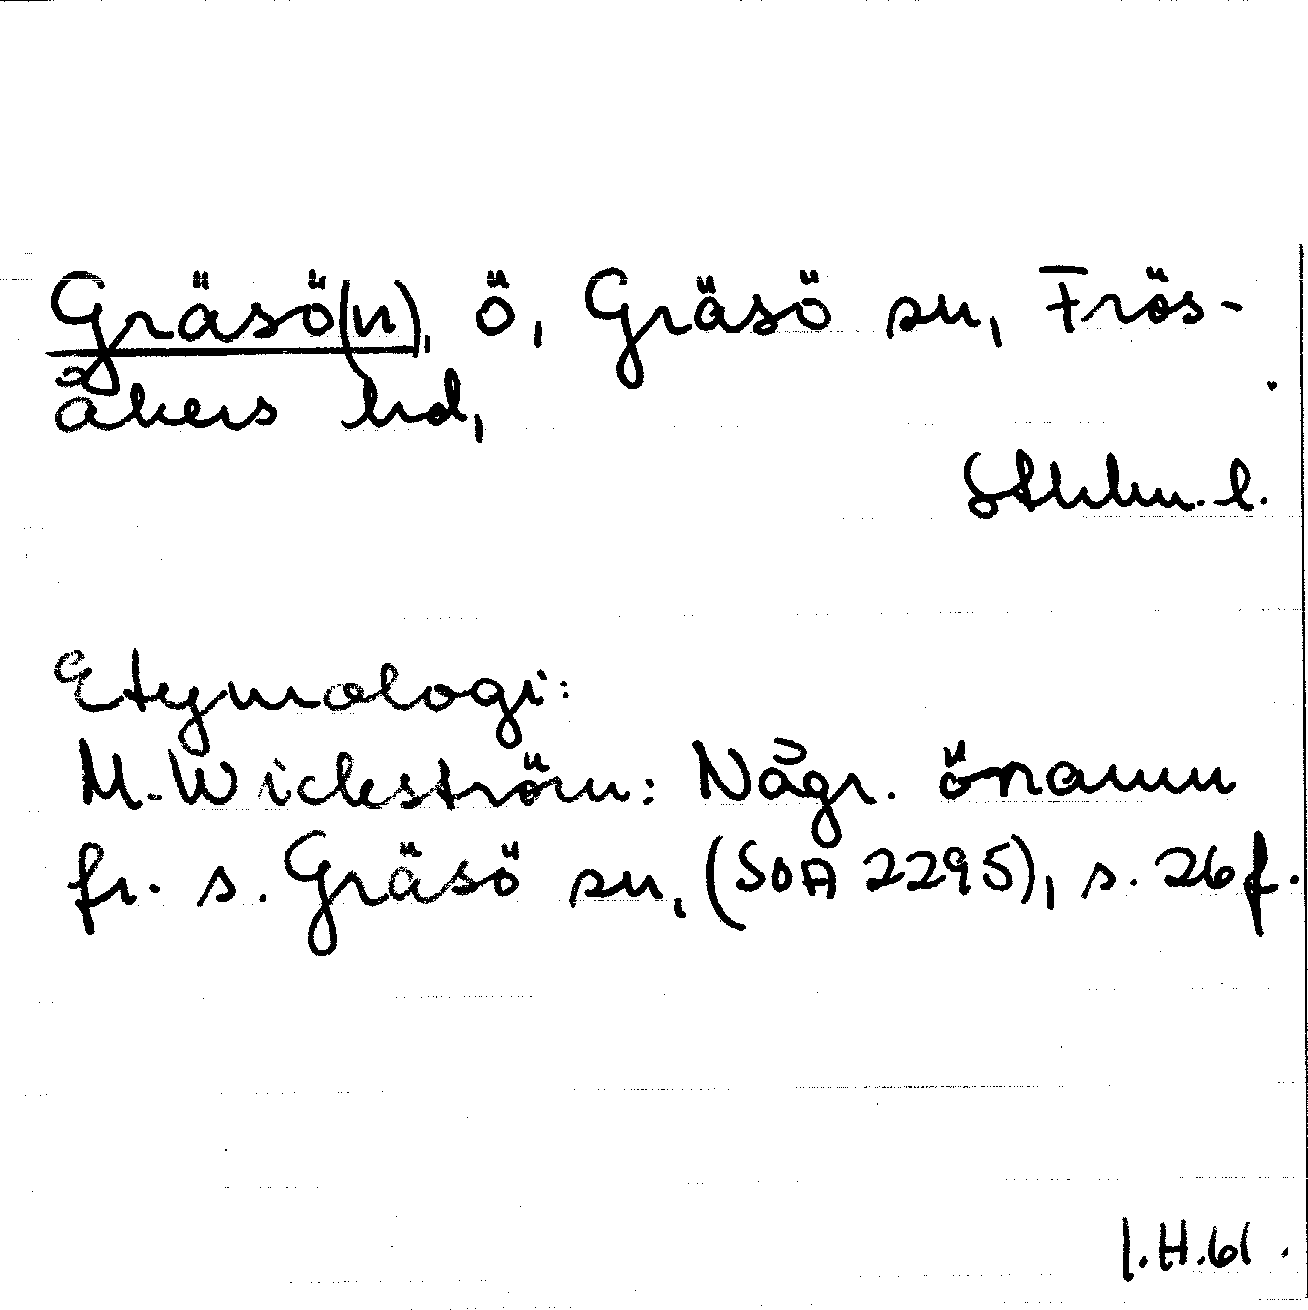 Gräsö(n), ö, Gräsö sn, Frös-
åkers hd,
Sthlm. l.
Etymologi:
M. Wickström: Någr. önamn
fr. s. Gräsö sn, (SOA 2295), s. 26 f.
I.H.61.